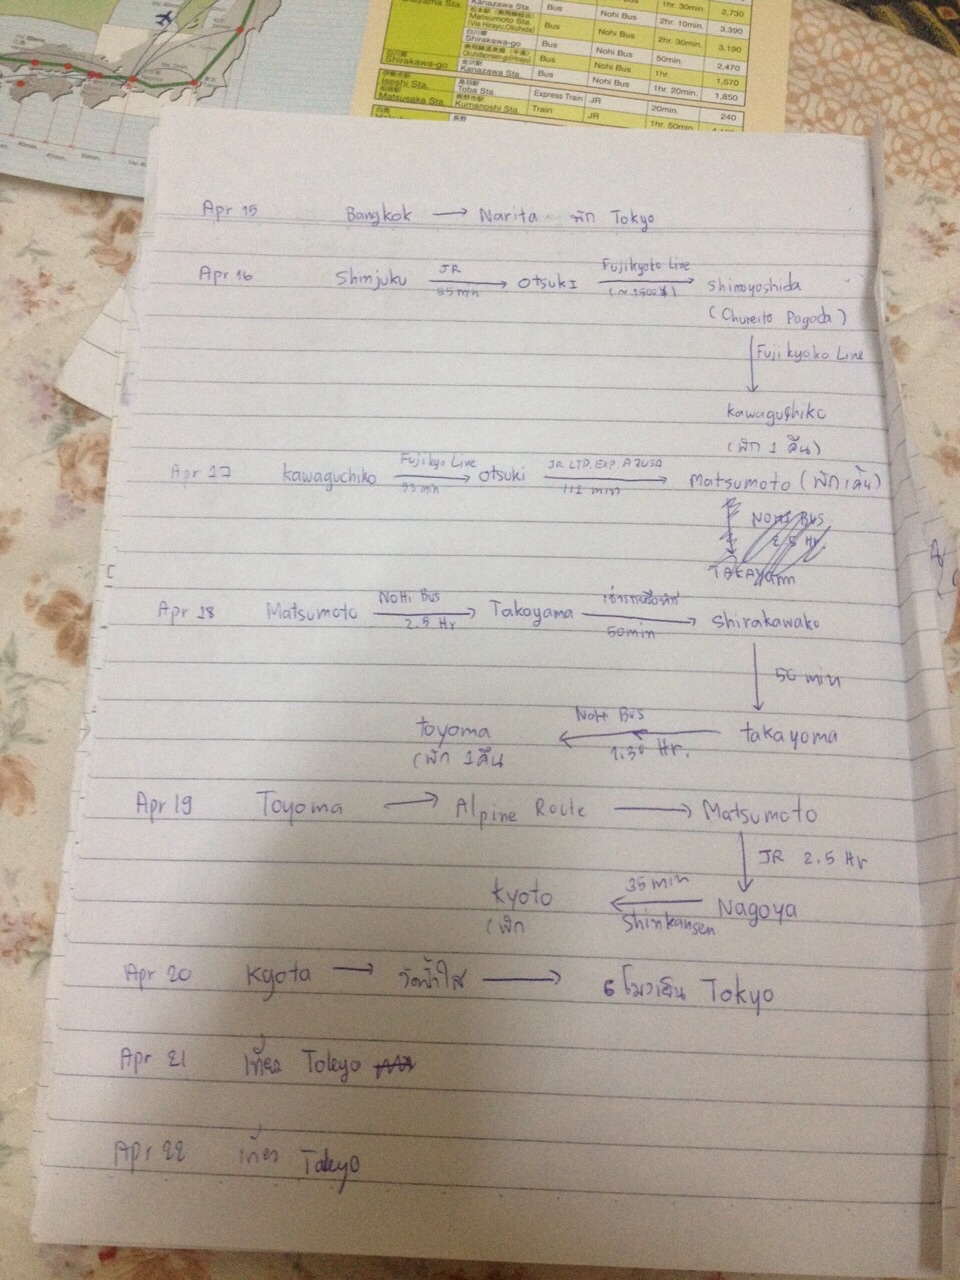 Kanazawa Sta. Bus Nohi Bus 1hr. 30min. 2,730
Matsumoto Sta. Bus Nohi Bus 2hr. 10min. 3,390
(Via Hirayu,Okuhida) 2hr. 30min. 3,190
Shirakawa-go Bus Nohi Bus 50min. 2,470
Shirakawa-go Bus Nohi Bus 1hr. 1,570
Kanazawa Sta. Bus Nohi Bus 1hr. 20min. 1,850
Iseshi Sta. Toba Sta. Express Train JR 20min. 240
Matsusaka Sta. Kumanoshi Sta. Train JR 1hr. 50min.
Apr 15 Bangkok → Narita พัก Tokyo
Apr 16 Shinjuku JR 55min → Otsuki Fujikyoko Line (~1500¥) → Shimoyoshida
(Chureito Pagoda)
↓ Fujikyoko Line
Kawagushiko
(พัก 1 คืน)
Apr 17 Kawaguchiko Fujikyo Line 55 min → Otsuki JR LTD. EXP. AZUSA 112 min → Matsumoto (พัก 1 คืน)
NOHI BUS
2.5 Hr
TAKAYAMA
Apr 18 Matsumoto NOHI BUS 2.5 Hr → Takayama 50min → Shirakawako
↓ 50 min
toyoma ← NOHI BUS 1.30 Hr. takayoma
(พัก 1 คืน
Apr 19 Toyoma → Alpine Route → Matsumoto
↓ JR 2.5 Hr
Kyoto ← 35 min Shinkansen Nagoya
(พัก
Apr 20 Kyota → วัดน้ำใส → 6 โมงเย็น Tokyo
Apr 21 เที่ยว Tokyo
Apr 22 เที่ยว Tokyo